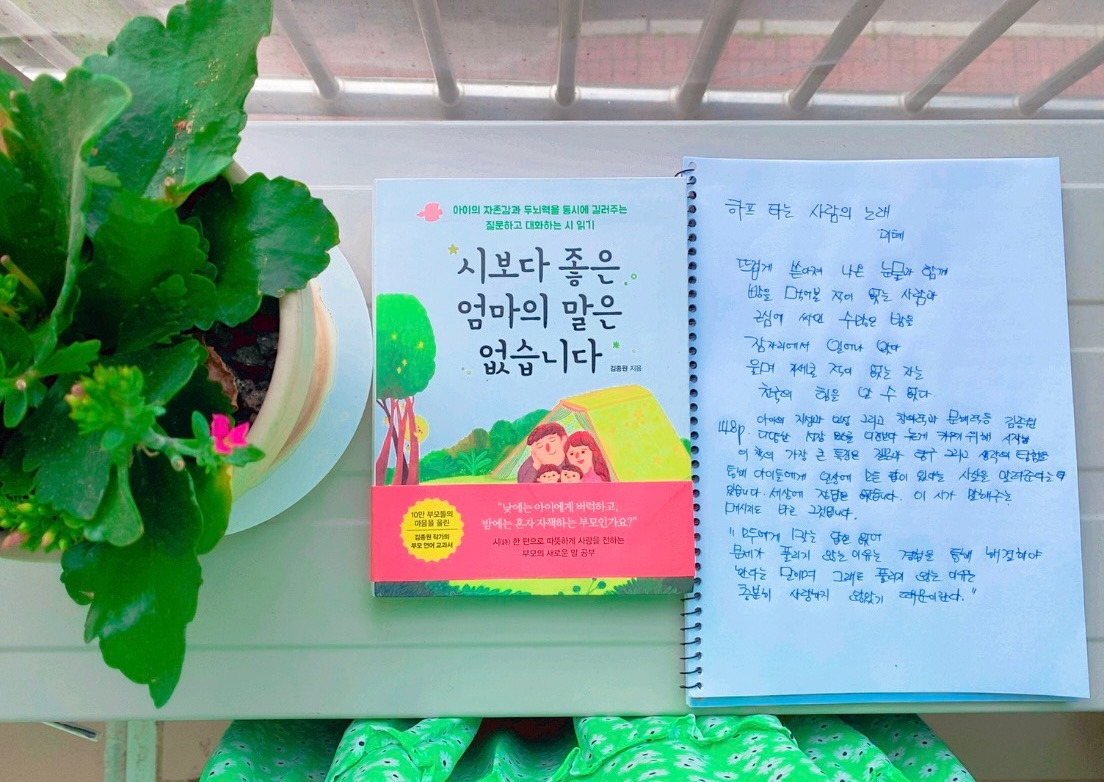 아이의 자존감과 두뇌력을 동시에 길러주는
질문하고 대화하는 시 읽기
시보다 좋은
엄마의 말은
없습니다
김종원 지음
10만 부모들의
마음을 울린
김종원 작가의
부모 언어 교과서
"낮에는 아이에게 버럭하고,
밤에는 혼자 자책하는 부모인가요?"
시(詩) 한 편으로 따뜻하게 사랑을 전하는
부모의 새로운 말 공부
하프 타는 사람의 노래
괴테
뜨겁게 쏟아져 나온 눈물과 함께
밤을 적이 없는 사람과
근심에 싸인 수많은 밤을
잠자리에서 일어나 앉아
울며 지새운 적이 없는 자는
천국의 힘을 알 수 없다
148p. 아이의 지성과 그리고 창의력과 문해력을
이 책의 가장 큰 특징은 질문과 그리고 생각의
통해 아이들에게 있다는 사실을
없습니다. 세상에 없습니다. 이 시가 말해주는
메시지도 바로 그것입니다.
"모두에게 맞는 답은 없어
문제가 풀리지 않는 이유는 경험을 통해 해결해야
한다는 그래도 풀리지 않는 이유는
충분히 사랑하지 않았기 때문이란다."